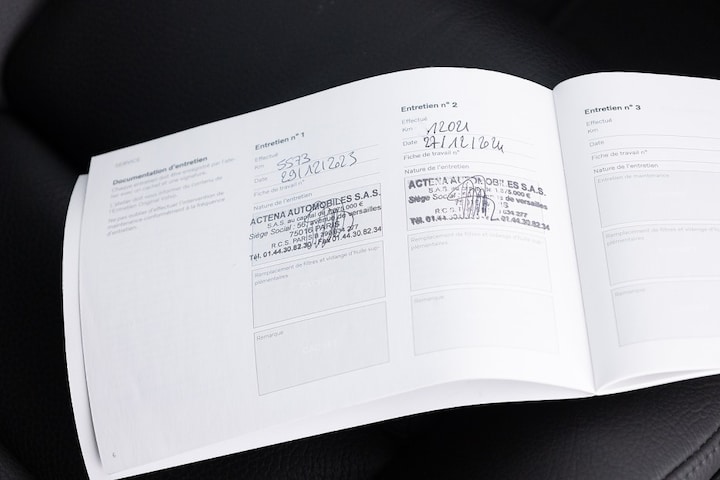 SERVICE
Documentation d'entretien
d'entretien.
Entretien n° 1
Effectué
Km 5573
Date 29/12/2023
Fiche de travail n°
Nature de l'entretien
ACTENA AUTOMOBILES S.A.S.
S.A.S. au capital de
Siège Social : 56, avenue de versailles
75016 PARIS
R.C.S. PARIS B
Tél. 01.44.30.82.30 - Fax 01.44.30.82.34
Remplacement de filtres et vidange d'huile sup-
plémentaires
Remarque
Entretien n° 2
Effectué
Km 12021
Date 27/12/2024
Fiche de travail n°
Nature de l'entretien
ACTENA AUTOMOBILES S.A.S.
S.A.S. au capital
Siège Social : de versailles
R.C.S.
Tél. 01.44. 01.44.30.82.34
Remplacement de filtres et vidange d'huile sup-
plémentaires
Remarque
Entretien n° 3
Effectué
Km
Date
Fiche de travail n°
Nature de l'entretien
Entretien de maintenance
Remplacement de filtres et vidange d'
plémentaires
Remarque